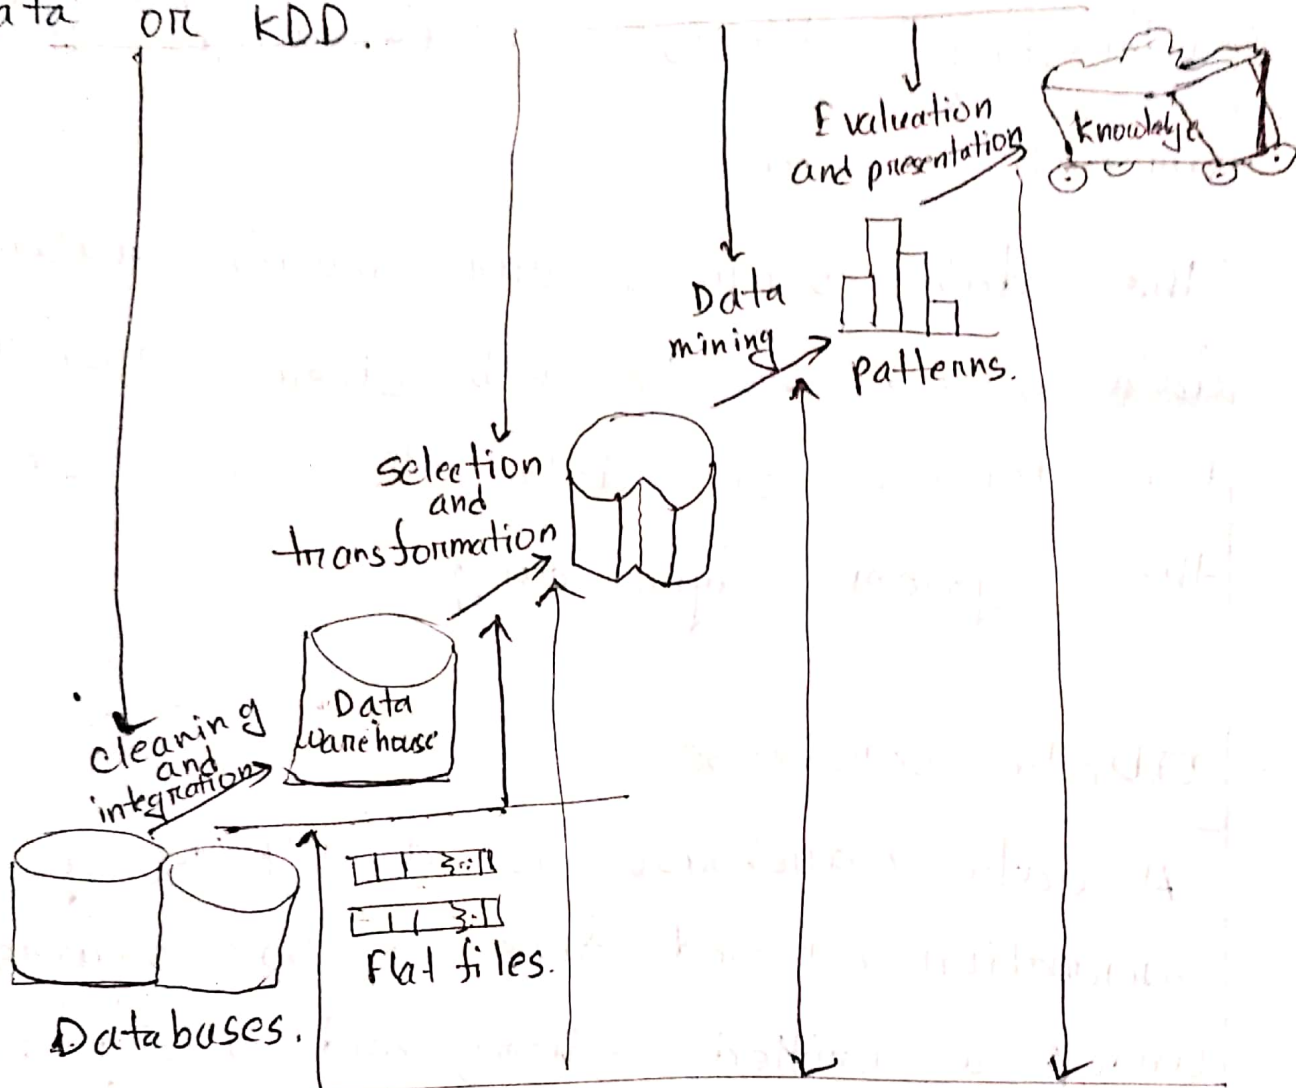 ata or KDD.
Evaluation
and presentation
knowledge
Data
mining
patterns.
selection
and
transformation
Data
warehouse
cleaning
and
integration
Flat files.
Databases.